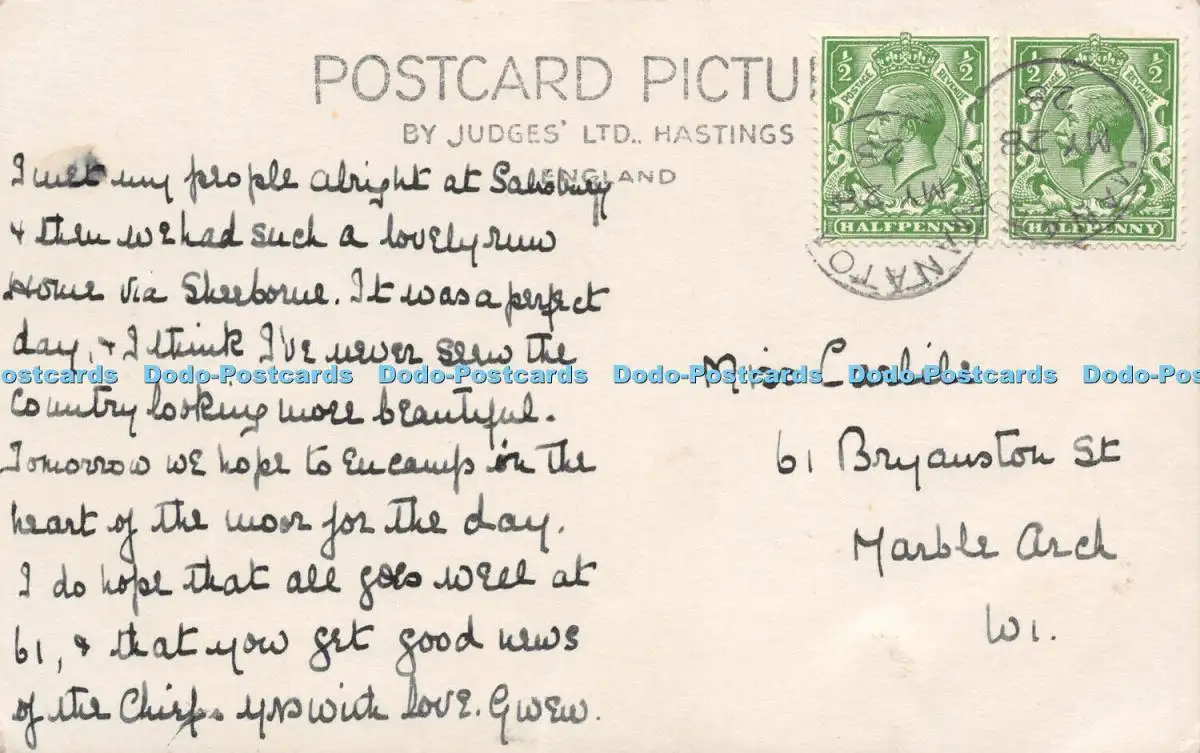 POSTCARD PICTU
BY JUDGES' LTD., HASTINGS
ENGLAND
½ ½
POSTAGE REVENUE
HALFPENNY
½ ½
HALFPENNY
MY 28
28
MY 28
28
I met my people alright at Salisbury
& then we had such a lovely run
Home via Sherborne. It was a perfect
day, & I think I've never seen the
country looking more beautiful.
Tomorrow we hope to encamp in the
heart of the moor for the day.
I do hope that all goes well at
61, & that you get good news
of the Chief. Yrs with love. Gwen.
Miss Carlile
61 Bryanston St
Marble Arch
W1.
ostcards Dodo-Postcards Dodo-Postcards Dodo-Postcards Dodo-Postcards Dodo-Pos